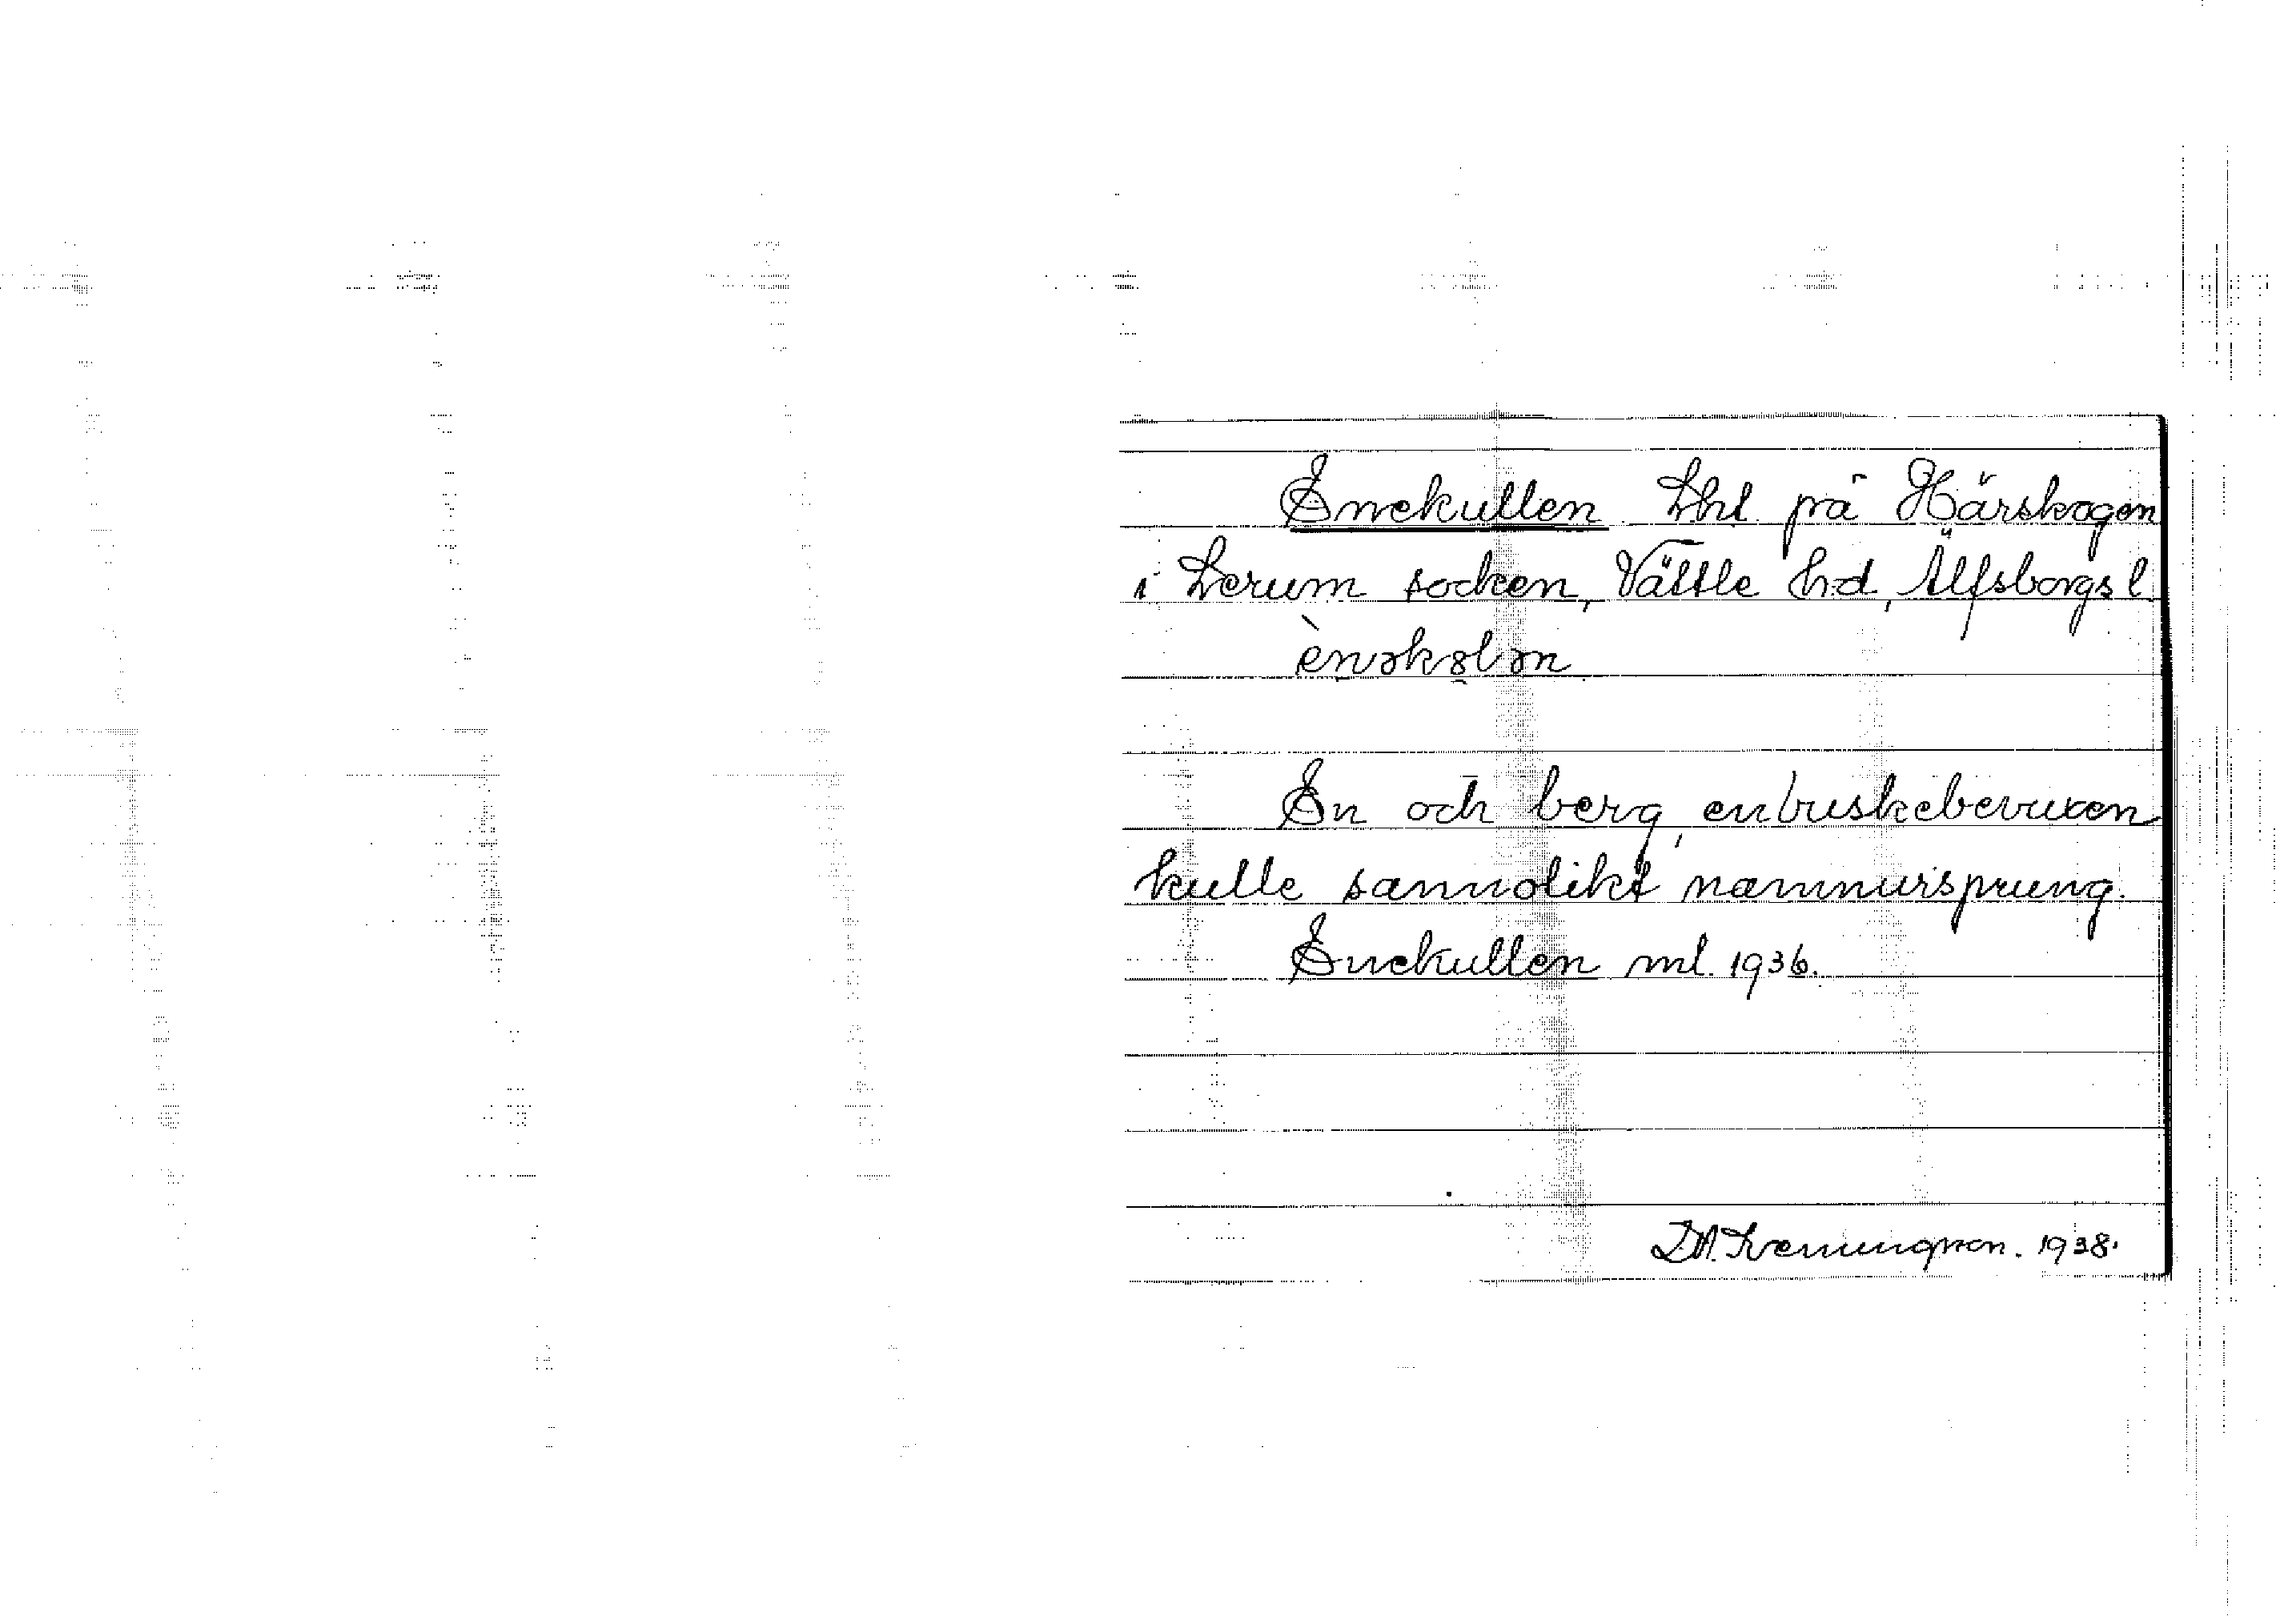 Enekullen. Lht. på Härskogen
i Lerum socken, Vättle h:d, Älfsborgs l.
ènəkɵlən
En och berg, enbuskebevuxen
kulle sannolikt namnursprung.
Enekullen ml. 1936.
1938.